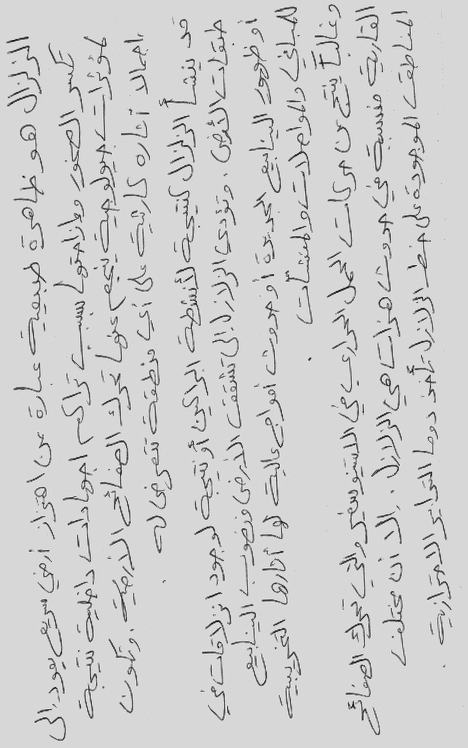 الزلزال هو ظاهرة طبيعية عبارة عن اهتزاز أرضي سريع يعود إلى
تكسر الصخور وإزاحتها بسبب تراكم اجهادات داخلية نتيجة
لمؤثرات جيولوجية ينجم عنها تحرك الصفائح الأرضية. وتكون
اجمالا آثاره كارثية على أي منطقة تتعرض له.
قد ينشأ الزلزال كنتيجة لأنشطة البراكين أو نتيجة لوجود انزلاقات في
طبقات الأرض. وتؤدي الزلازل إلى تشقق الأرض ونضوب الينابيع
أو ظهور الينابيع الجديدة أو حدوث أمواج عالية لها آثارها التخريبية
للمباني والمواصلات والمنشآت.
وغالباً ينتج عن حركات الحمل الحراري في الأستينوسفير والتي تحرك الصفائح
القارية متسببة في حدوث هزات هي الزلازل. إلا أن مختلف
المناطق الموجودة على خط الزلازل تأخذ دوما التدابير الاحترازية.